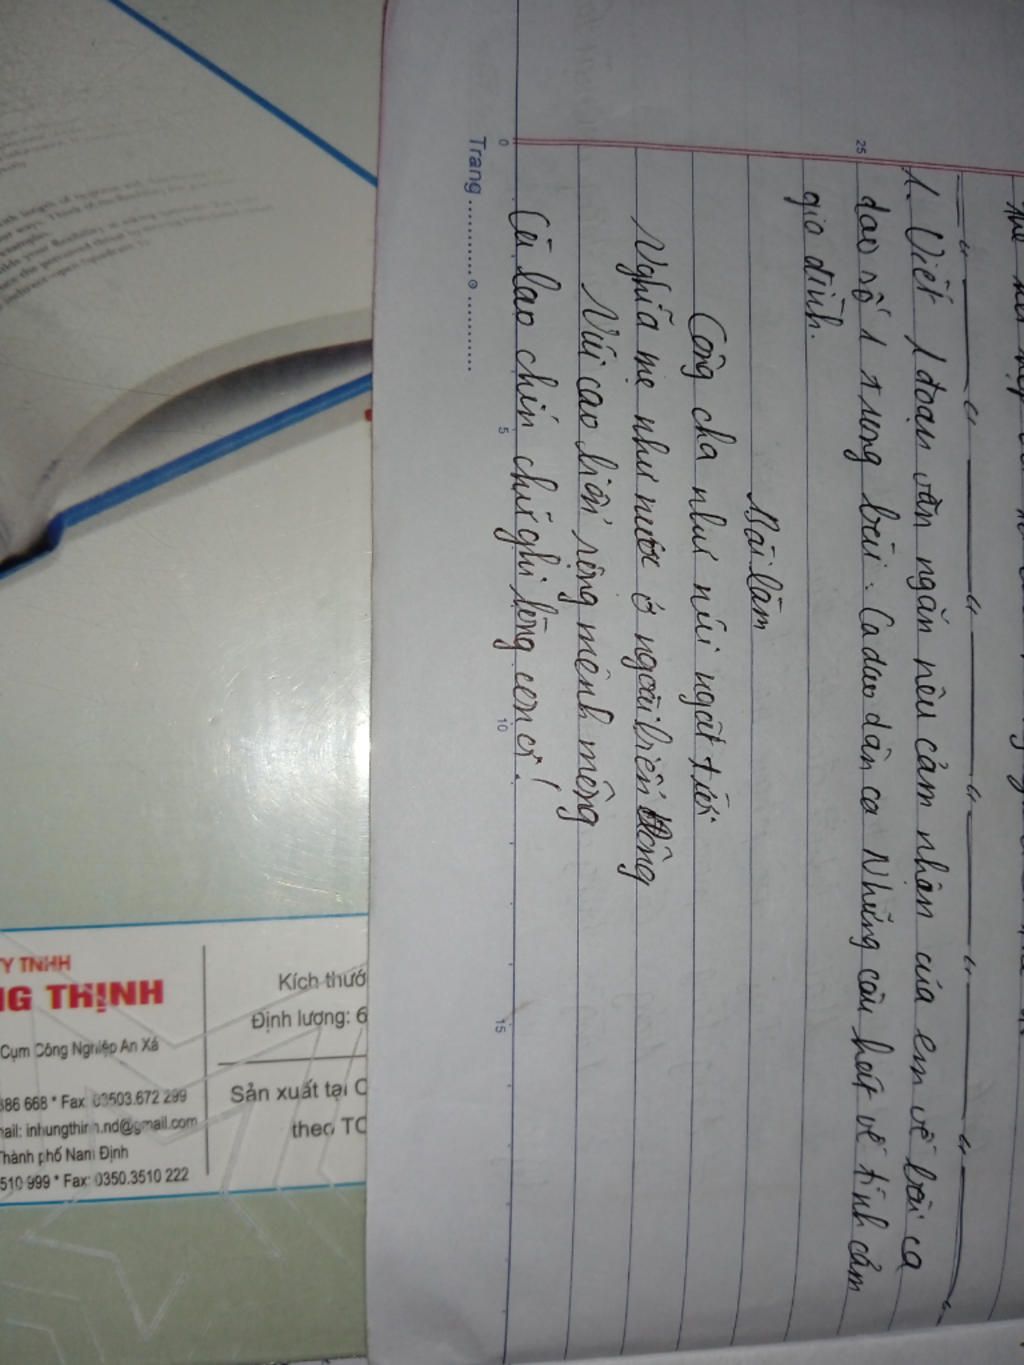 1. Viết 1 đoạn văn ngắn nêu cảm nhận của em về bài ca
dao số 1 trong bài: Ca dao dân ca Những câu hát về tình cảm
gia đình.
Bài làm
Công cha như núi ngất trời
Nghĩa mẹ như nước ở ngoài biển đông
Núi cao biển rộng mênh mông
Cù lao chín chữ ghi lòng con ơi!
Trang
25
0
5
10
15
Y TNHH
NG THỊNH
Cụm Công Nghiệp An Xá
686 668 * Fax: 03503.672 299
mail: inhungthinh.nd@gmail.com
Thành phố Nam Định
510 999 * Fax: 0350.3510 222
Kích thướ
Định lượng: 6
Sản xuất tại C
theo TC